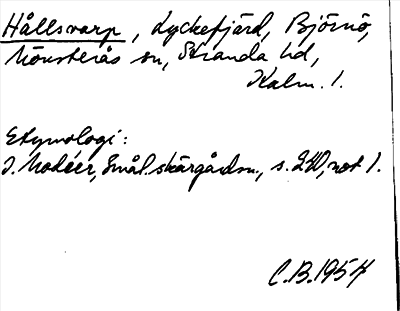 Hållsvarp, Lyckefjärd, Björnö,
Mönsterås sn, Stranda hd,
Kalm. l.
Etymologi:
I. Modéer, Smål. skärgårdsn., s. 240, not 1.
C.B. 1954